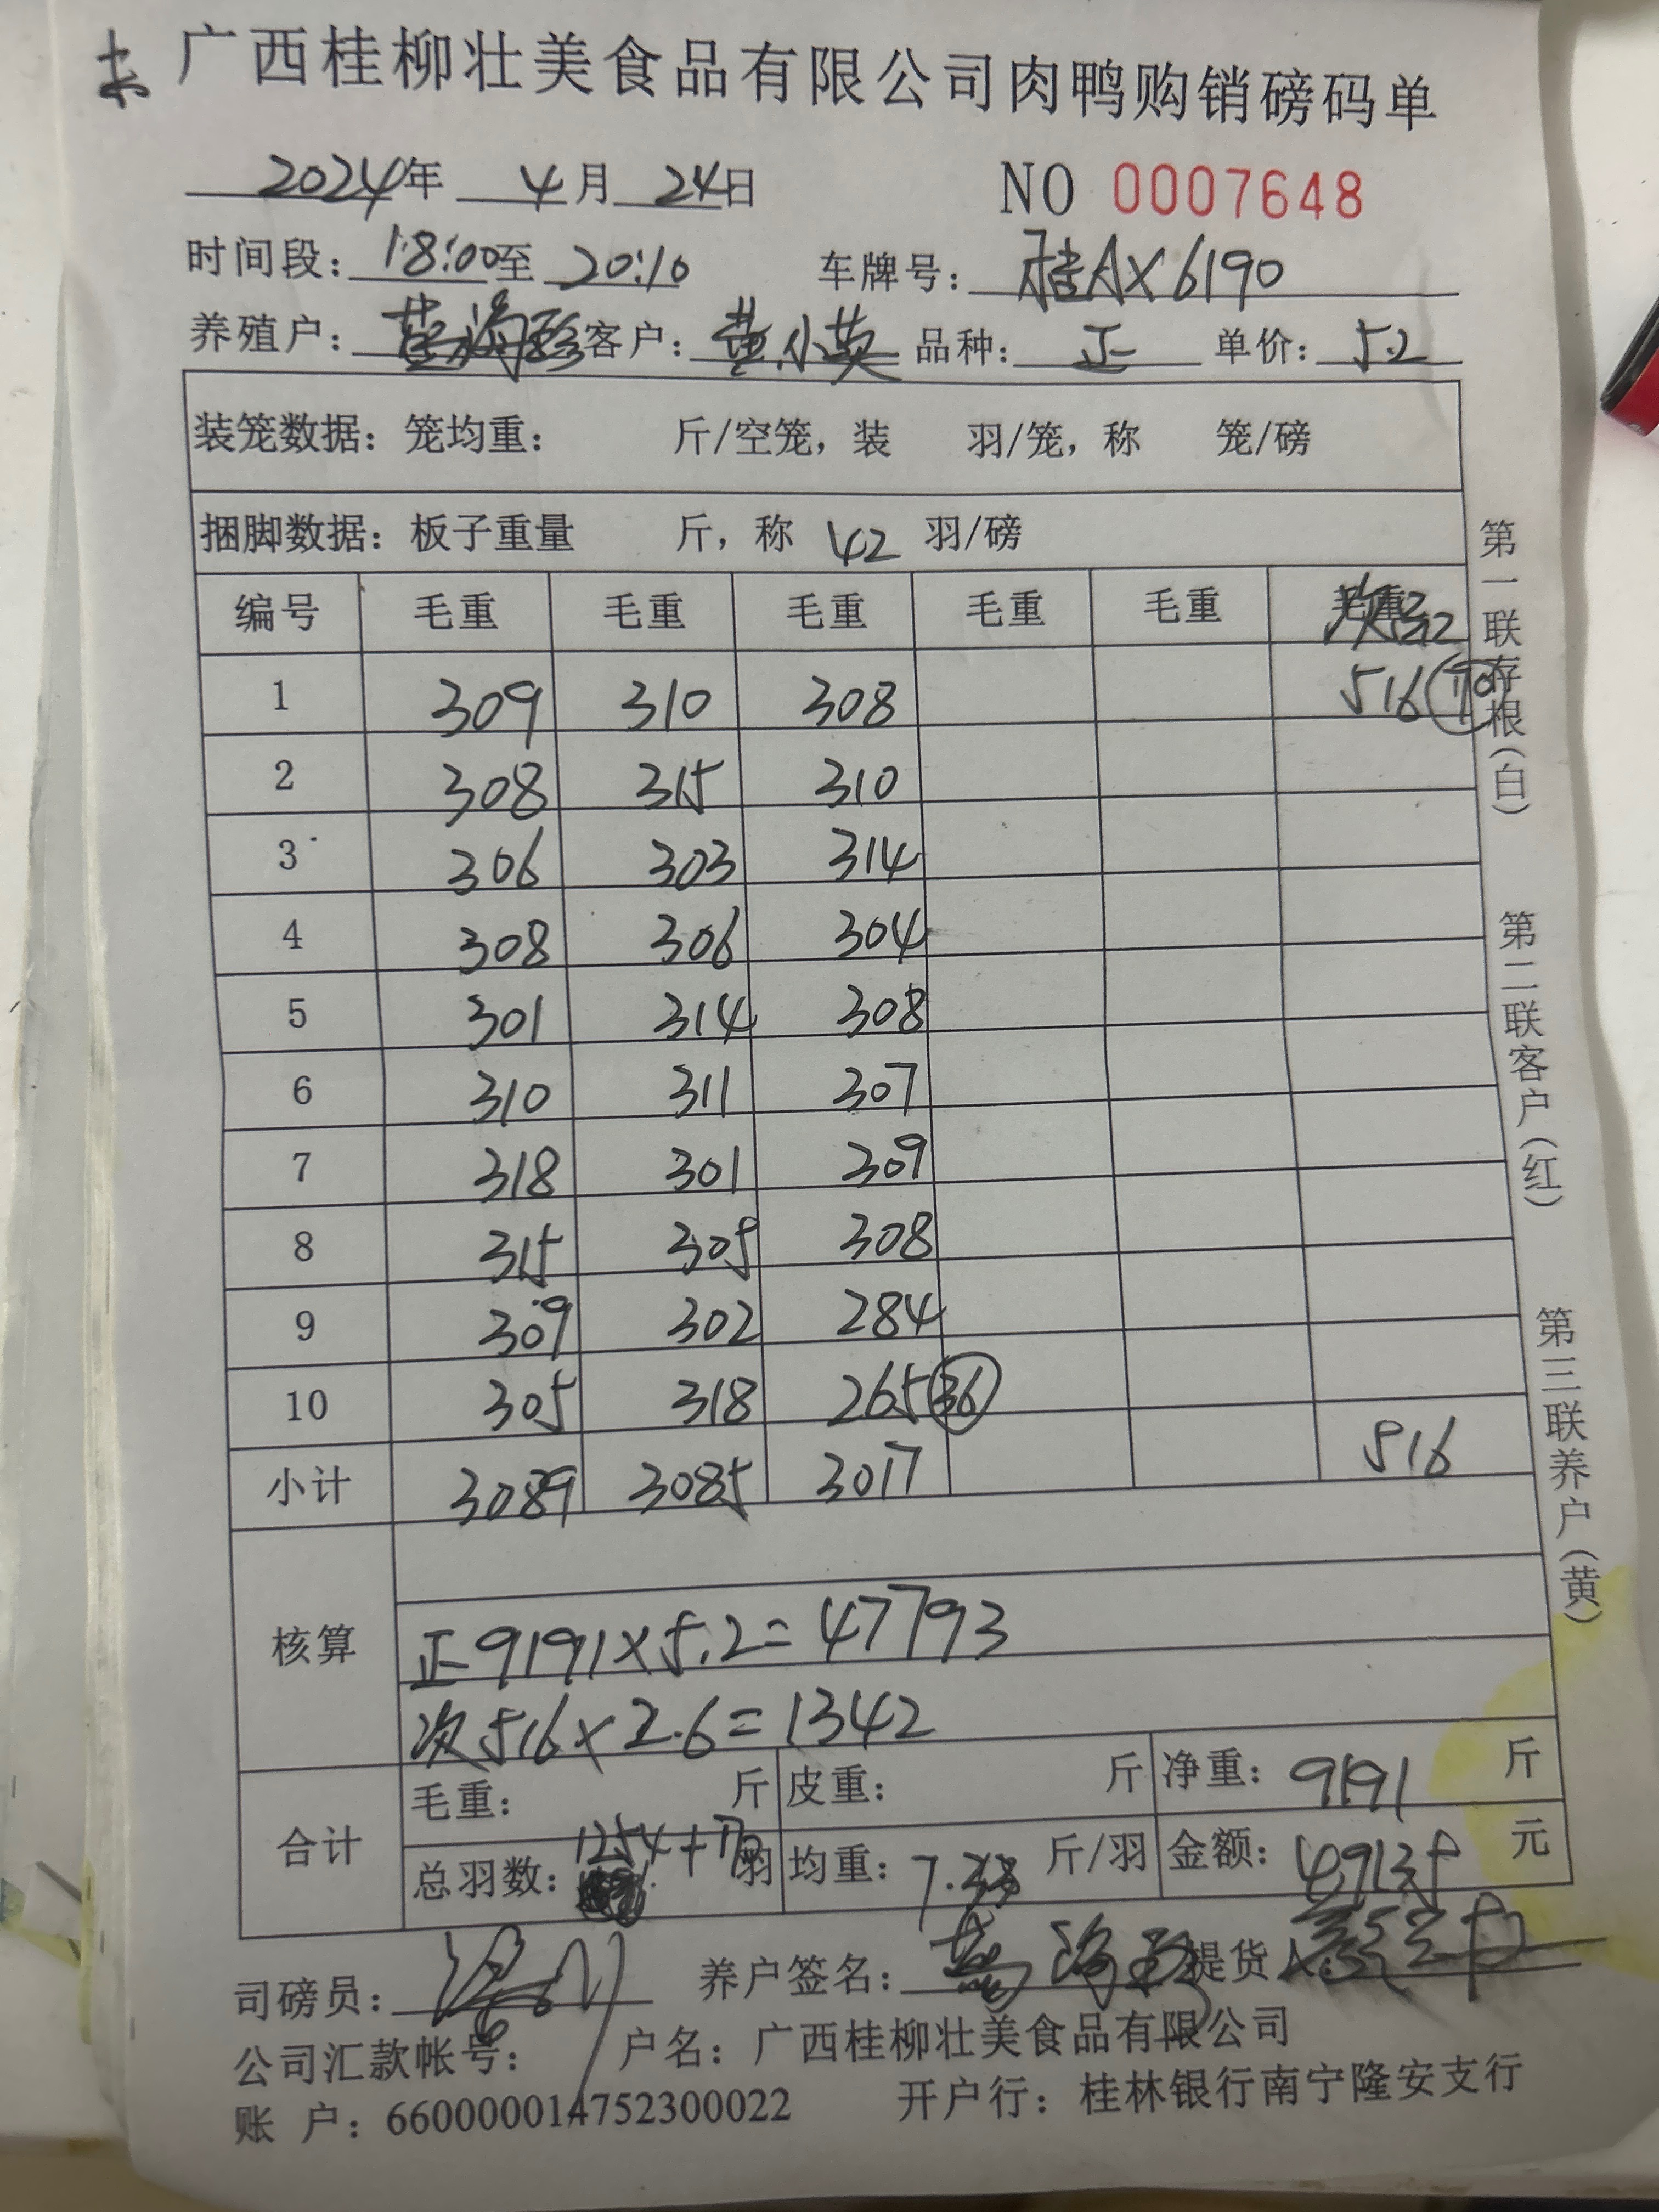 广西桂柳壮美食品有限公司肉鸭购销磅码单
2024年 4月 24日 NO 0007648
时间段：18:00至 20:10 车牌号：桂AX6190
养殖户：黄海珍 客户：黄小英 品种：正 单价：5.2
装笼数据：笼均重： 斤/空笼，装 羽/笼，称 笼/磅
捆脚数据：板子重量 斤，称 42 羽/磅
编号 毛重 毛重 毛重 毛重 毛重
1 309 310 308 516
2 308 315 310
3 306 303 314
4 308 306 304
5 301 314 308
6 310 311 307
7 318 301 309
8 315 305 308
9 309 302 284
10 305 318 265 36
小计 3089 3085 3017 516
核算
正9191×5.2=47793
次516×2.6=1342
合计
毛重： 斤 皮重： 斤 净重：9191 斤
总羽数：1254+ 羽 均重：7.33 斤/羽 金额：49135 元
司磅员： 养户签名：黄海珍 提货人
公司汇款帐号： 户名：广西桂柳壮美食品有限公司
账 户：660000014752300022 开户行：桂林银行南宁隆安支行
第一联存根（白）
第二联客户（红）
第三联养户（黄）